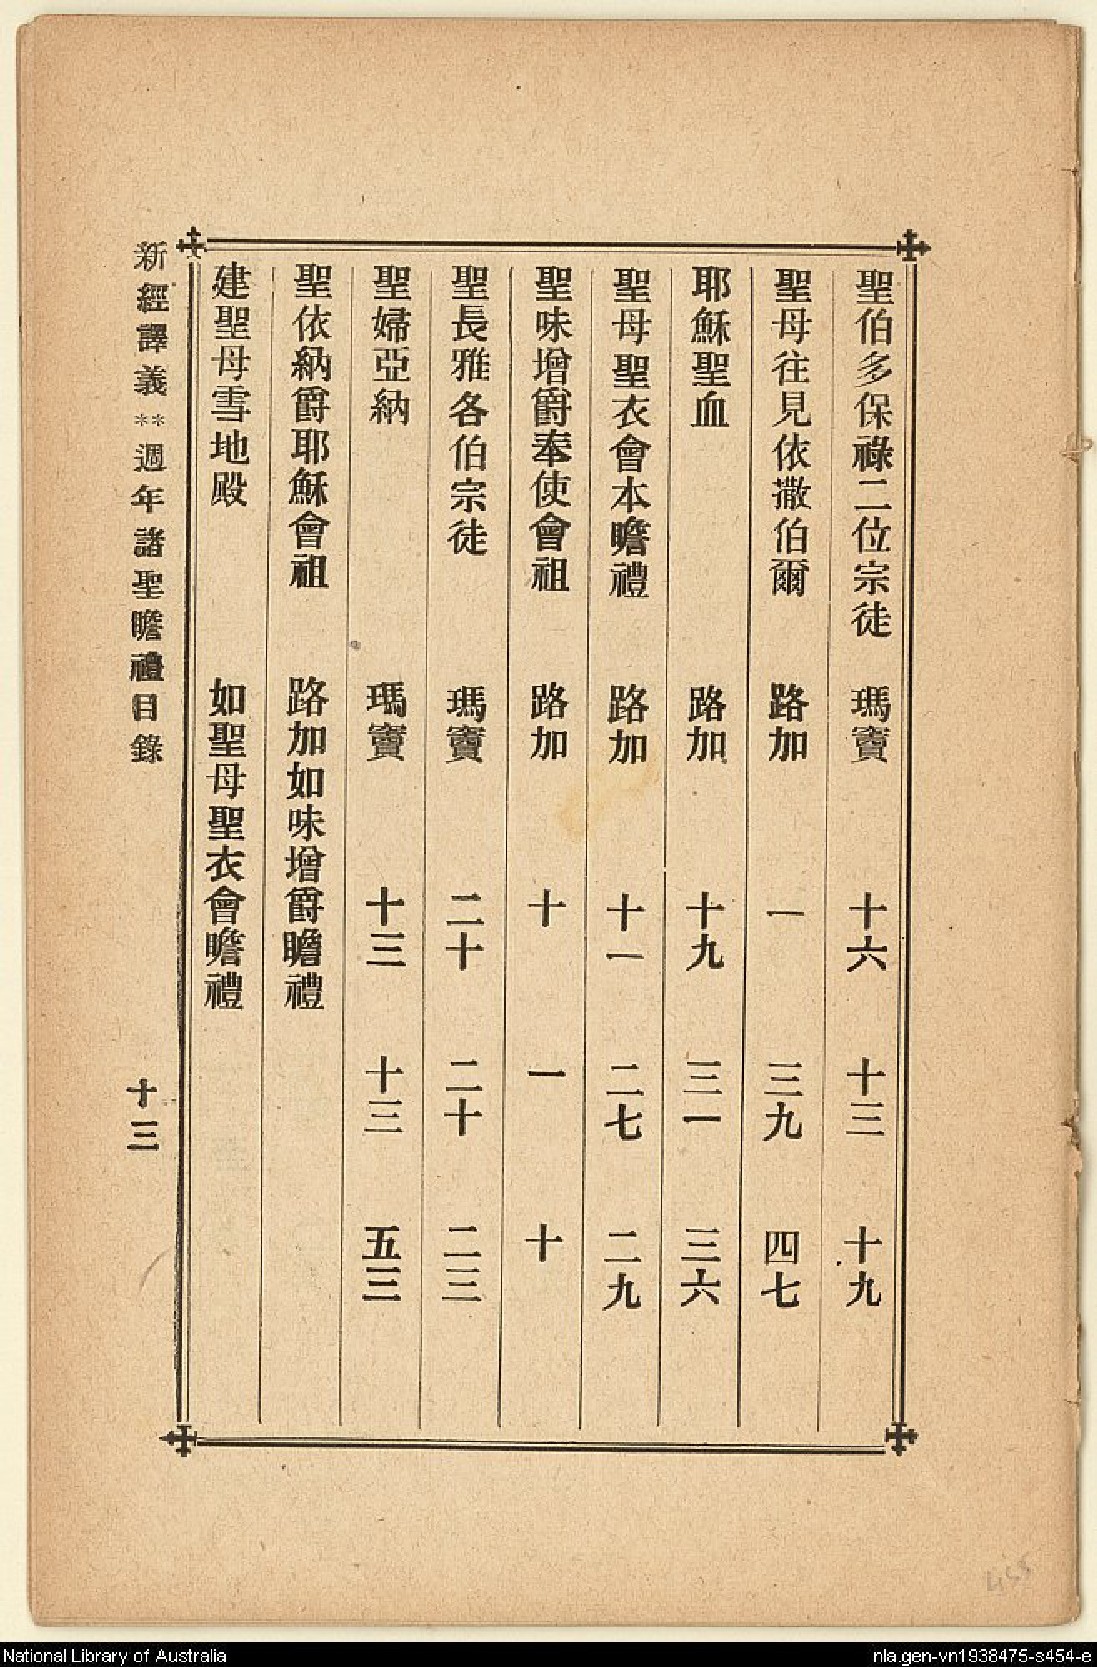 聖伯多保祿二位宗徒 瑪竇 十六 十三 十九
聖母往見依撒伯爾 路加 一 三九 四七
耶穌聖血 路加 十九 三一 三六
聖母聖衣會本瞻禮 路加 十一 二七 二九
聖味增爵奉使會祖 路加 十 一 十
聖長雅各伯宗徒 瑪竇 二十 二十 二三
聖婦亞納 瑪竇 十三 十三 五三
聖依納爵耶穌會祖 路加如味增爵瞻禮
建聖母雪地殿 如聖母聖衣會瞻禮
新經譯義**週年諸聖瞻禮目錄 十三
National Library of Australia
nla.gen-vn1938475-s454-e